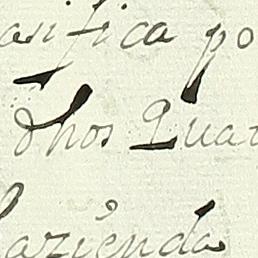 asifica po
dhos Quat
azienda